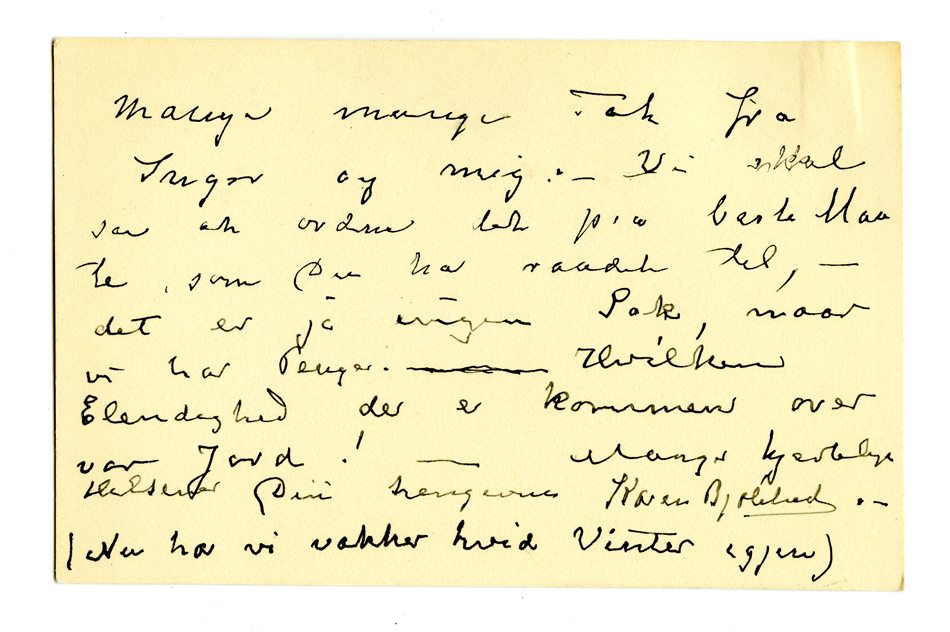 Mange mange Tak fra
Inger og mig. – Vi skal
se at ordne det paa beste Maa
te, som Du har raadet til, –
det er jo ingen Sak, naar
vi har Penger. Hvilken
Elendighed der er kommen over
vor Jord! – Mange hjertelige
Hilsener Din hengivne Karen Bjølstad. –
(Nu har vi vakker hvid Vinter igjen)